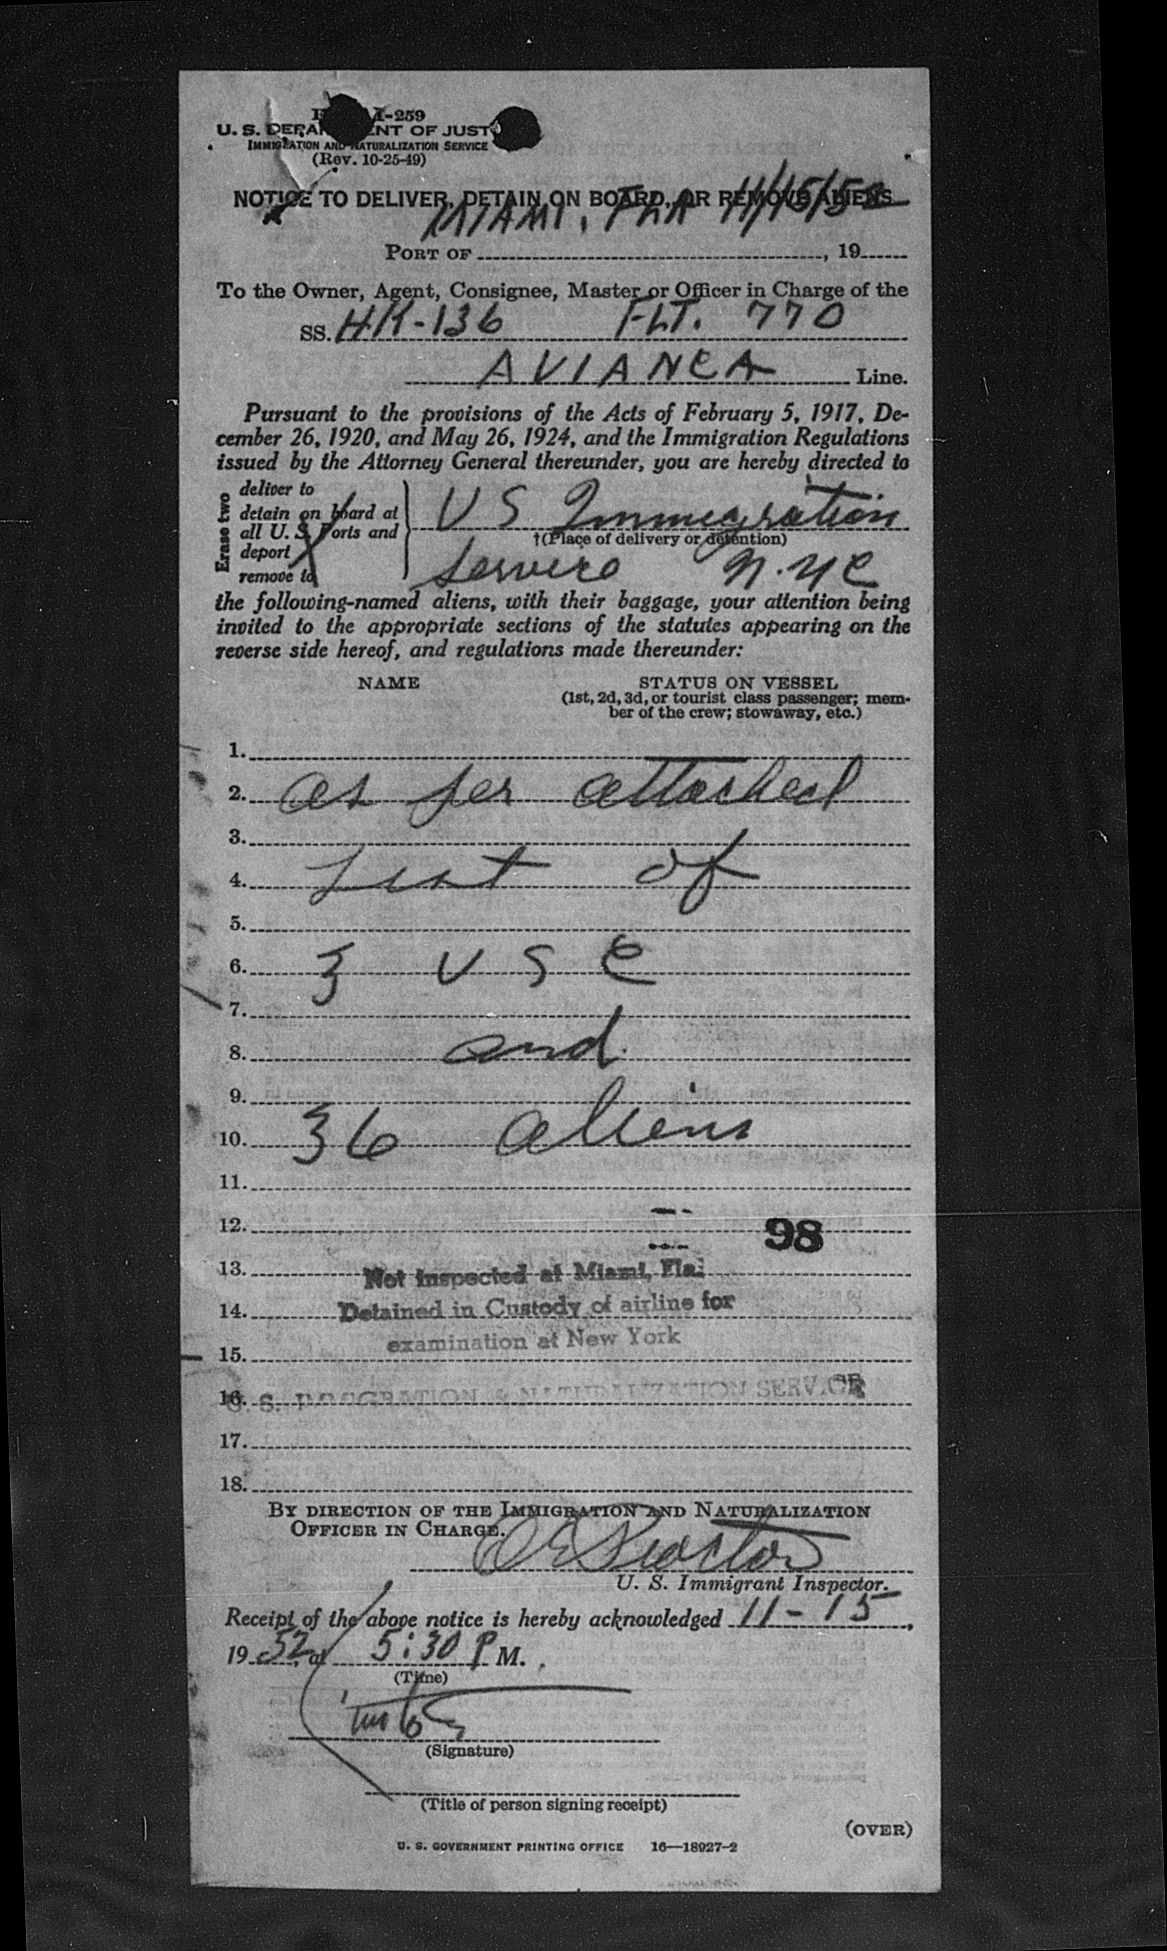 I-259
U. S. DEPARTMENT OF JUSTICE
IMMIGRATION AND NATURALIZATION SERVICE
(Rev. 10-25-49)
NOTICE TO DELIVER, DETAIN ON BOARD, OR REMOVE ALIENS
MIAMI, FLA 11/15/52
PORT OF , 19
To the Owner, Agent, Consignee, Master or Officer in Charge of the
SS. HK-136 FLT. 770
AVIANCA Line.
Pursuant to the provisions of the Acts of February 5, 1917, De-
cember 26, 1920, and May 26, 1924, and the Immigration Regulations
issued by the Attorney General thereunder, you are hereby directed to
Erase two
deliver to
detain on board at
all U. S. Ports and
deport
remove to
US Immigration
†(Place of delivery or detention)
Service N.Y.C
the following-named aliens, with their baggage, your attention being
invited to the appropriate sections of the statutes appearing on the
reverse side hereof, and regulations made thereunder:
NAME STATUS ON VESSEL
(1st, 2d, 3d, or tourist class passenger; mem-
ber of the crew; stowaway, etc.)
1.
2. as per attached
3.
4. List of
5.
6. 3 USC
7.
8. and
9.
10. 36 aliens
11.
12. 98
13. Not Inspected at Miami, Fla.
14. Detained in Custody of airline for
examination at New York
15.
16. U. S. IMMIGRATION & NATURALIZATION SERVICE
17.
18.
BY DIRECTION OF THE IMMIGRATION AND NATURALIZATION
OFFICER IN CHARGE.
U. S. Immigrant Inspector.
Receipt of the above notice is hereby acknowledged 11-15,
19 52 at 5:30 P M.
(Time)
(Signature)
(Title of person signing receipt)
(OVER)
U. S. GOVERNMENT PRINTING OFFICE 16—18927-2